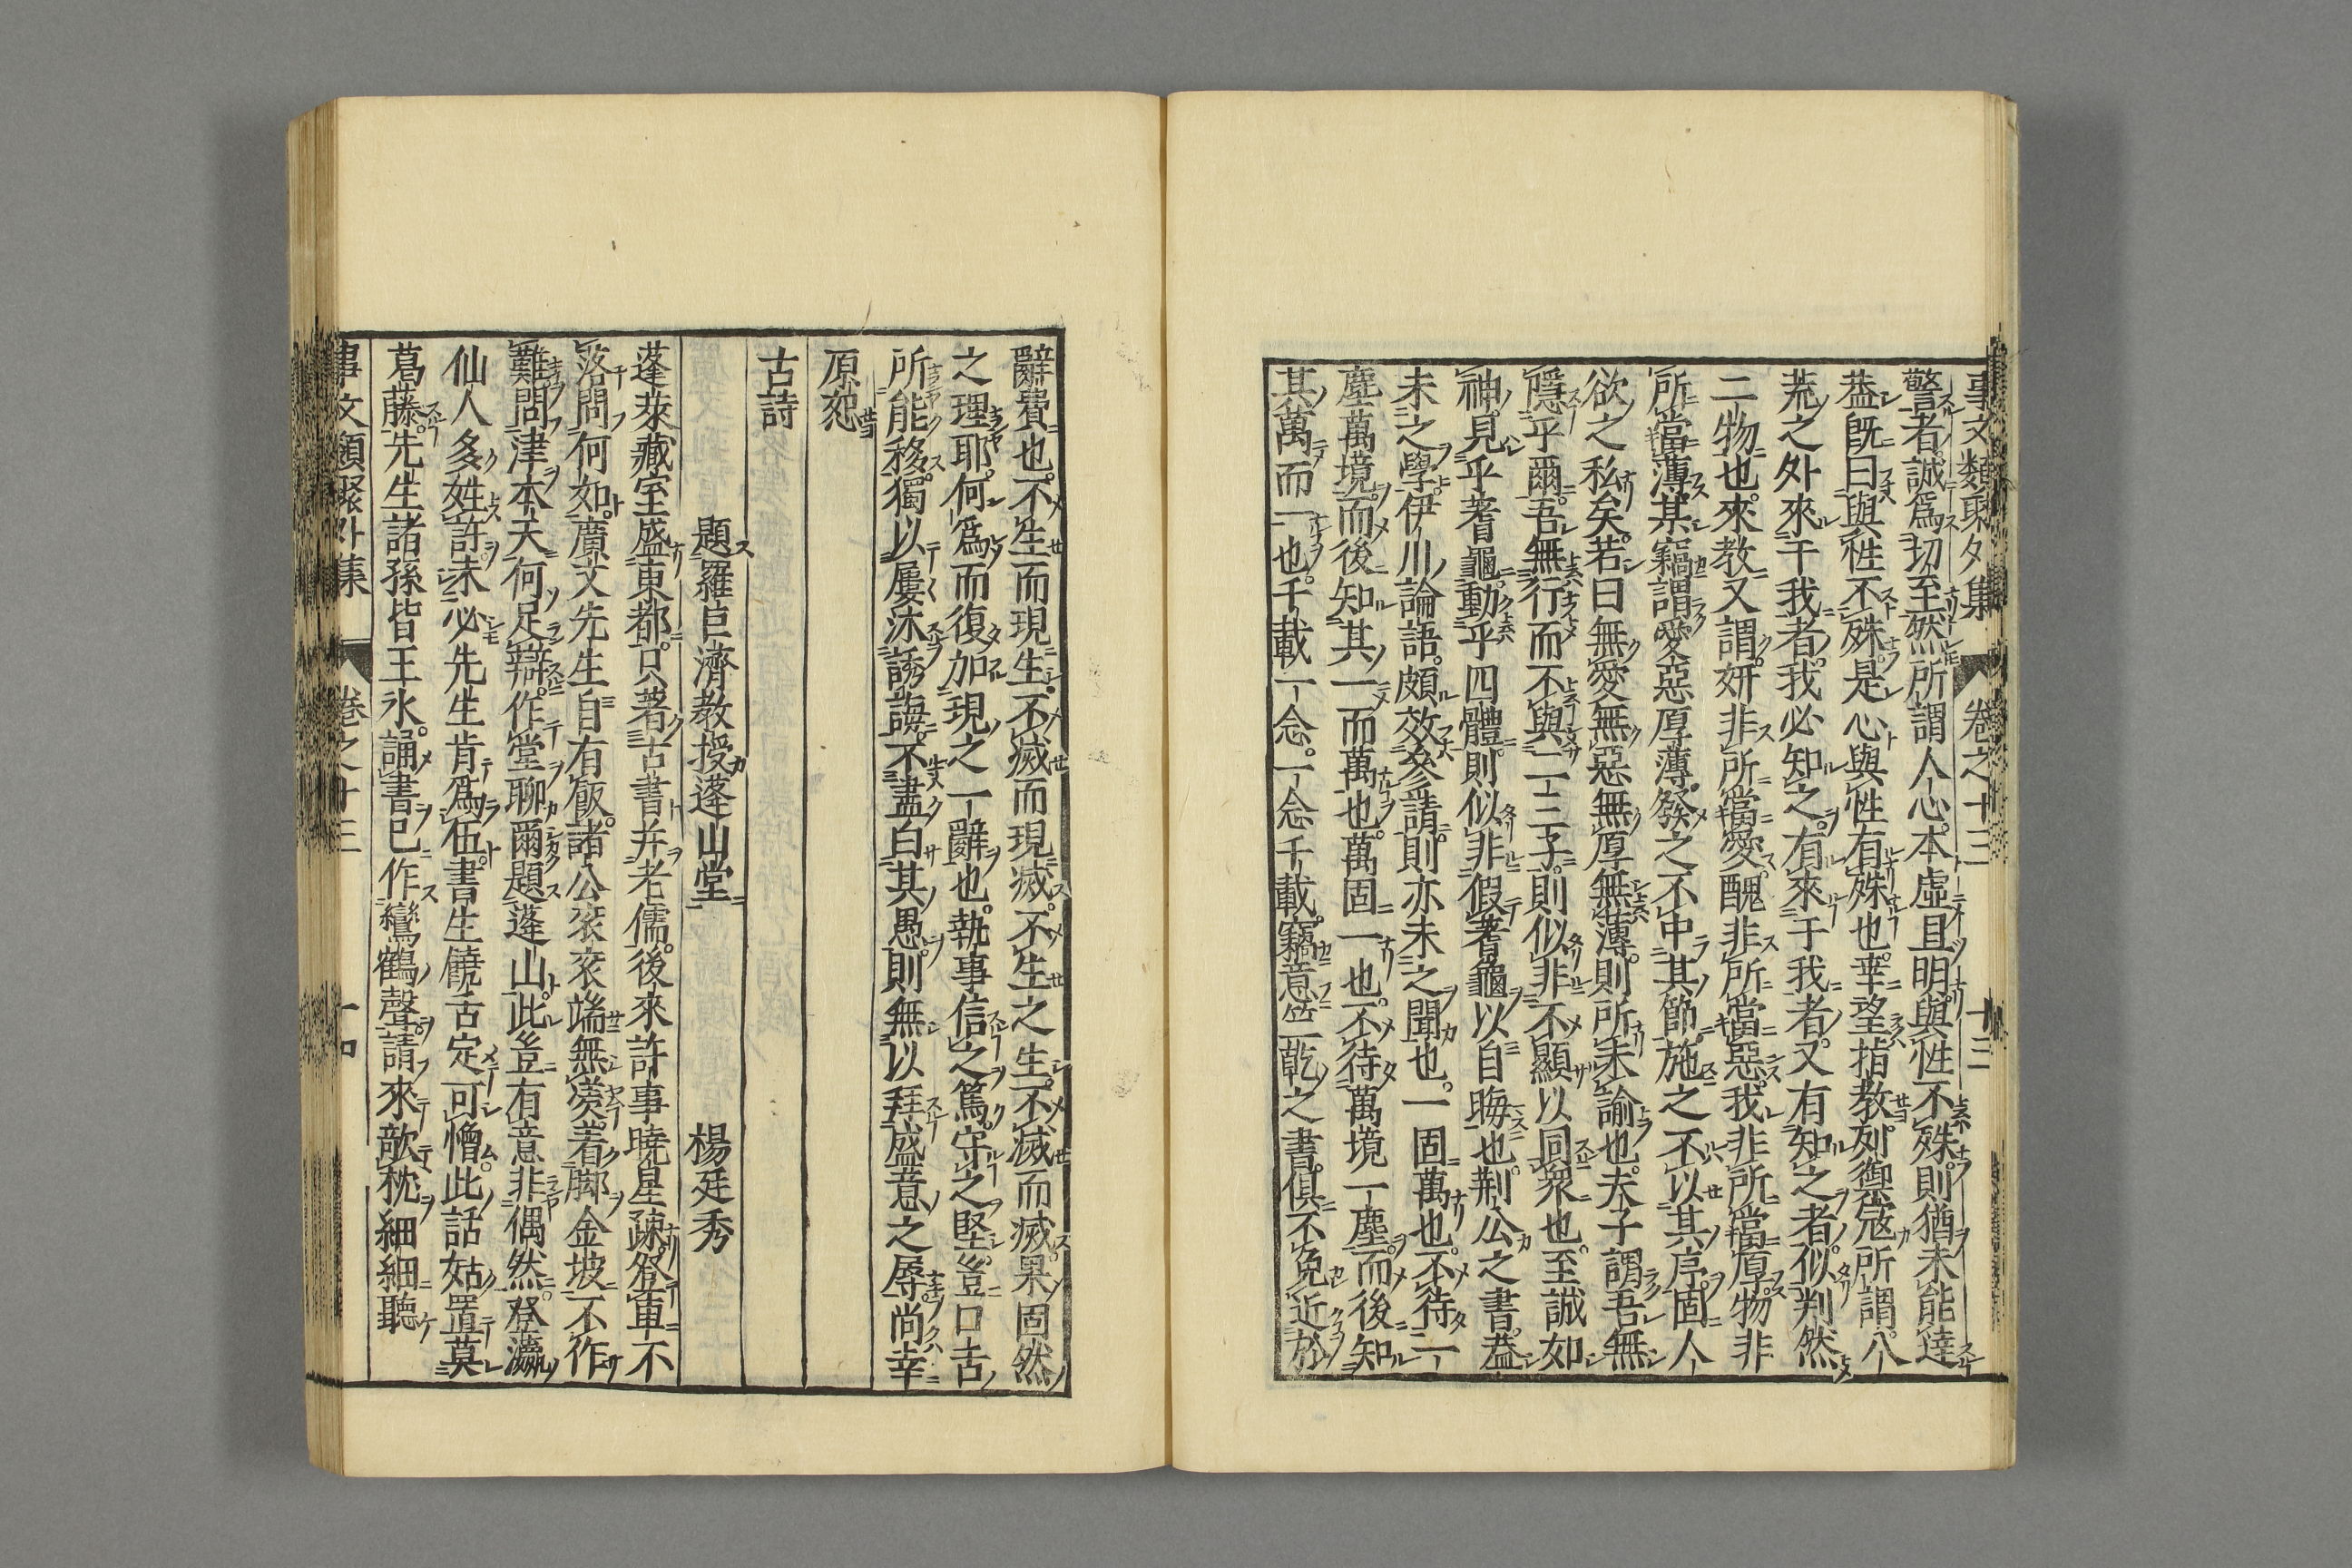 事文類聚外集 卷之十三 十三
警者誠爲切至然所謂人心本虛且明與性不殊則猶未能達
葢既曰與性不殊是心與性有殊也幸望指教列禦寇所謂八
荒之外來干我者我必知之有來于我者又有知之者似判然
二物也來教又謂妍非所當愛醜非所當惡我非所當厚物非
所當薄某竊謂愛惡厚薄發之不中其節施之不以其序固人
欲之私矣若曰無愛無惡無厚無薄則所未諭也夫子謂吾無
隱乎爾吾無行而不與二三子則似非不顯以同衆也至誠如
神見乎蓍龜動乎四體則似非假蓍龜以自晦也荆公之書葢
未之學伊川論語頗效參請則亦未之聞也一固萬也不待一
塵萬境而後知其一而萬也萬固一也不待萬境一塵而後知
其萬而一也千載一念一念千載竊意竺乾之書俱不免近於
辭費也不生而現生不滅而現滅不生之生不滅而滅果固然
之理耶何爲而復加現之一辭也執事信之篤守之堅豈口舌
所能移獨以屢沐誘誨不盡白其愚則無以拜盛意之辱尚幸
原恕
古詩
題羅巨濟教授蓬山堂 楊廷秀
蓬萊藏室盛東都只著古書并老儒後來許事曉星疎登車不
落問何如廣文先生自有飯諸公衮衮端無羨着脚金坡不作
難問津木天何足辯作堂聊爾題蓬山此豈有意非偶然登瀛
仙人多姓許未必先生肯爲伍書生饒舌定可憎此話姑置莫
葛藤先生諸孫皆玉氷誦書已作鸞鶴聲請來欹枕細細聽
事文類聚外集 卷之十三